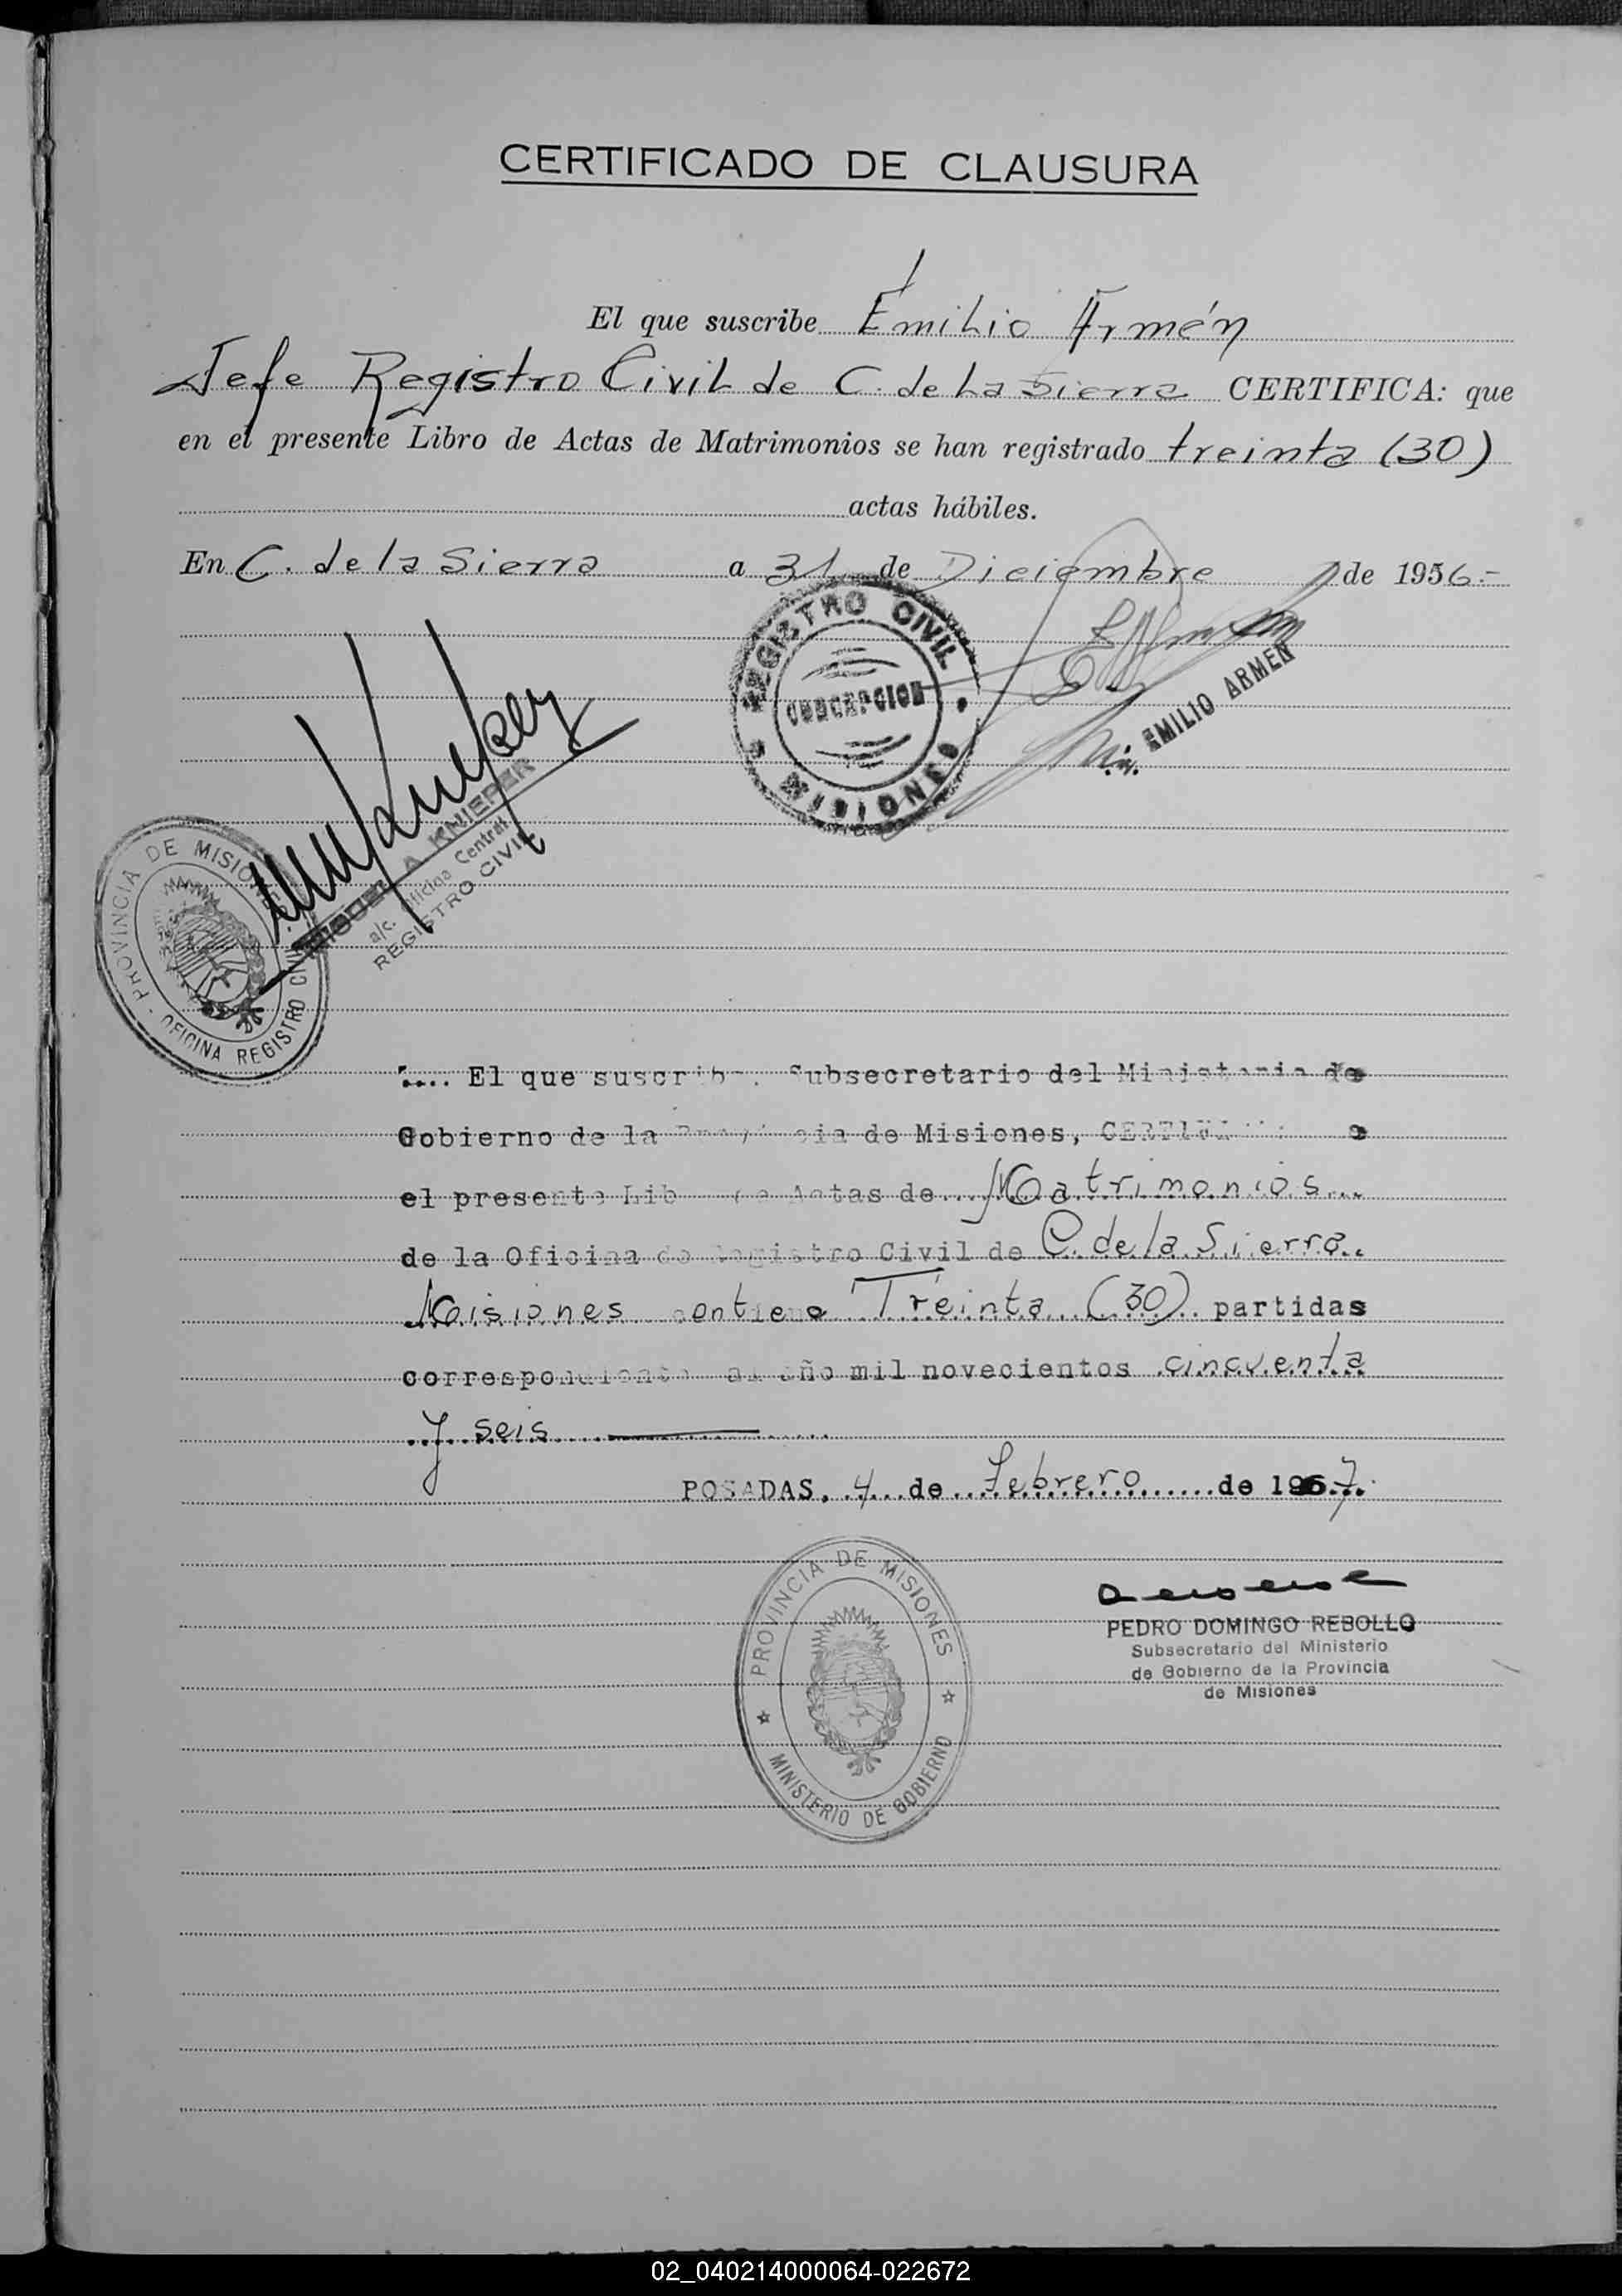 CERTIFICADO DE CLAUSURA
El que suscribe Emilio Armén
Jefe Registro Civil de C. de La Sierra CERTIFICA: que
en el presente Libro de Actas de Matrimonios se han registrado treinta (30)
actas hábiles.
En C. de la Sierra a 31 de Diciembre de 1956.-
REGISTRO CIVIL
CONCEPCION
MISIONES
EMILIO ARMEN
A. KNIEPER
a/c. Oficina Central
REGISTRO CIVIL
PROVINCIA DE MISIONES
OFICINA REGISTRO CIVIL
.... El que suscribe, Subsecretario del Ministerio de
Gobierno de la Provincia de Misiones, CERTIFICA:
el presente Libro de Actas de... Matrimonios...
de la Oficina de Registro Civil de C. de la Sierra..
Misiones contiene Treinta (30) partidas
correspondiente al año mil novecientos cincuenta
y seis
POSADAS, 4 de Febrero de 1957.
PROVINCIA DE MISIONES
MINISTERIO DE GOBIERNO
PEDRO DOMINGO REBOLLO
Subsecretario del Ministerio
de Gobierno de la Provincia
de Misiones
02_040214000064-022672